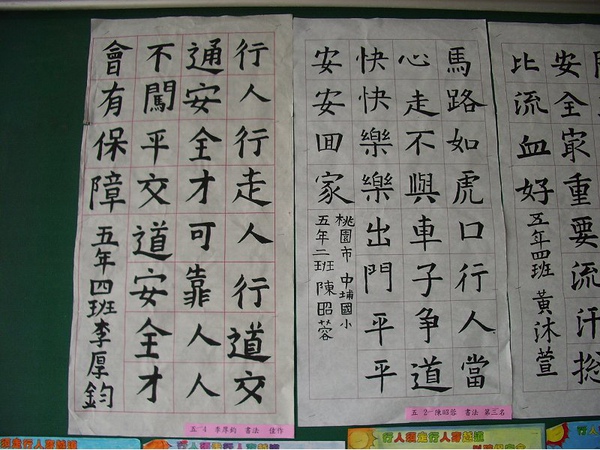 安全最重要流汗總
比流血好
五年四班 黃沐萱
馬路如虎口行人當
心走不與車子争道
快快樂樂出門平平
安安回家
桃園市中埔國小
五年二班陳昭蓉
五 2 陳昭蓉 書法 第三名
行人行走人行道交
通安全才可靠人人
不闖平交道安全才
會有保障
五年四班李厚鈞
五~4 李厚鈞 書法 佳作
行人須走行人穿越道